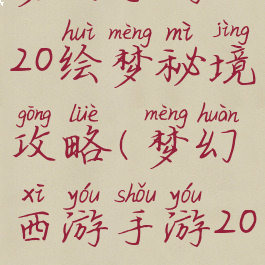 huì mèng mì jìng
20绘梦秘境
gōng lüè mèng huàn
攻略(梦幻
xī yóu shǒu yóu
西游手游20